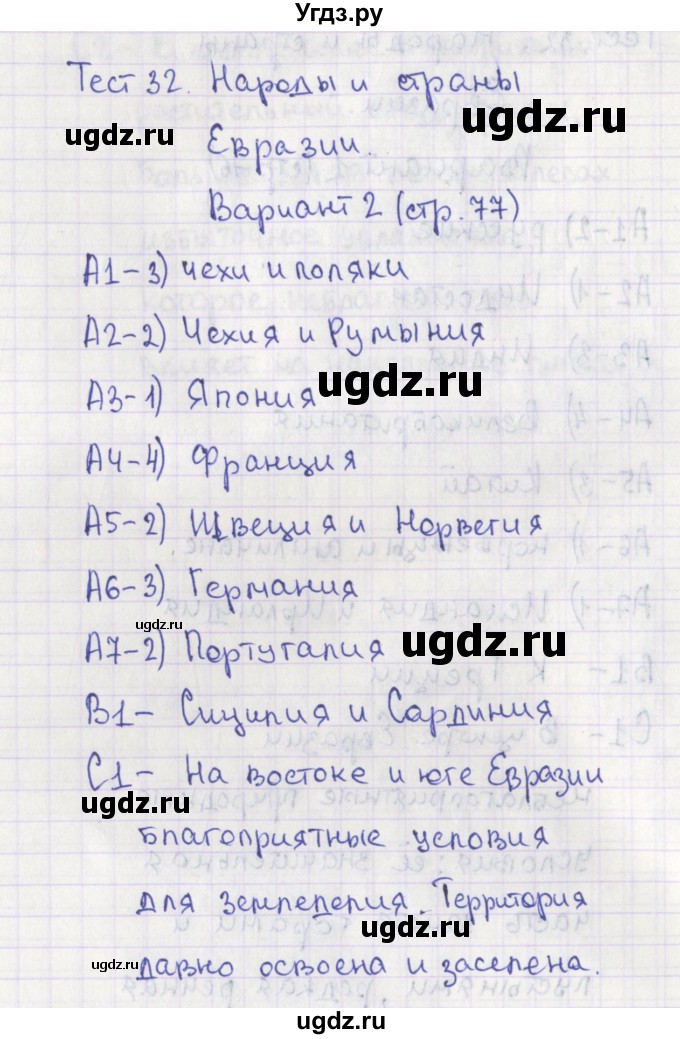 Угдз.ру
Тест 32. Народы и страны
ugdz.ru
ugdz.ru
Евразии.
Вариант 2 (стр. 77)
А1-3) чехи и поляки
А2-2) Чехия и Румыния
А3-1) Япония
ugdz.ru
А4-4) Франция
А5-2) Швеция и Норвегия
А6-3) Германия
ugdz.ru
А7-2) Португалия
ugdz.ru
В1- Сицилия и Сардиния
С1- На востоке и юге Евразии
ugdz.ru
благоприятные условия
для земледелия. Территория
ugdz.ru
давно освоена и заселена.
ugdz.ru
ugdz.ru